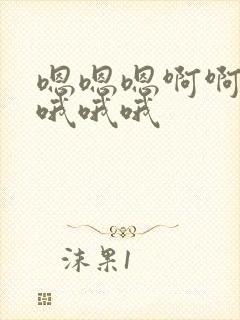 嗯嗯嗯啊啊
哦哦哦
沫果1